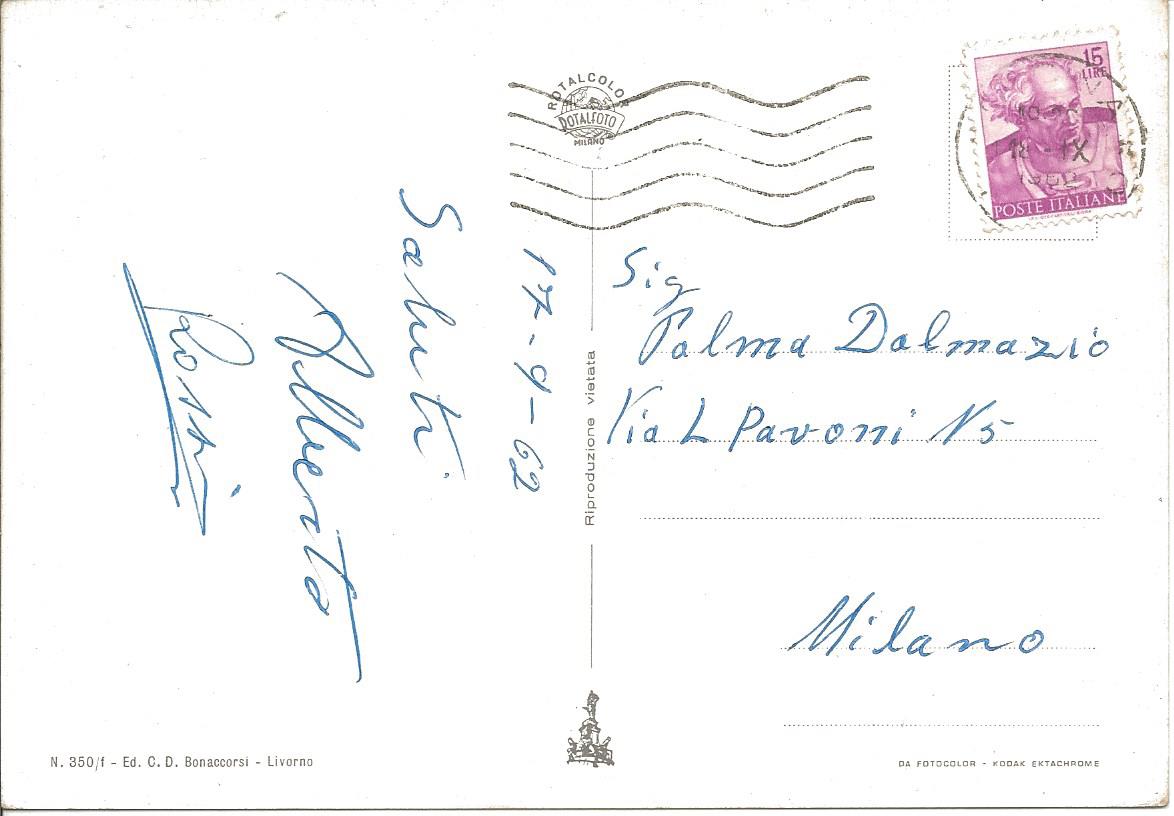 ROTALCOLOR
ROTALFOTO
MILANO
15
LIRE
POSTE ITALIANE
18 - IX
1962
17-9-62
Saluti
Alberto
Rossi
Riproduzione vietata
Sig
Palma Dalmazio
Via L Pavoni N5
Milano
N. 350/f - Ed. C. D. Bonaccorsi - Livorno
DA FOTOCOLOR - KODAK EKTACHROME